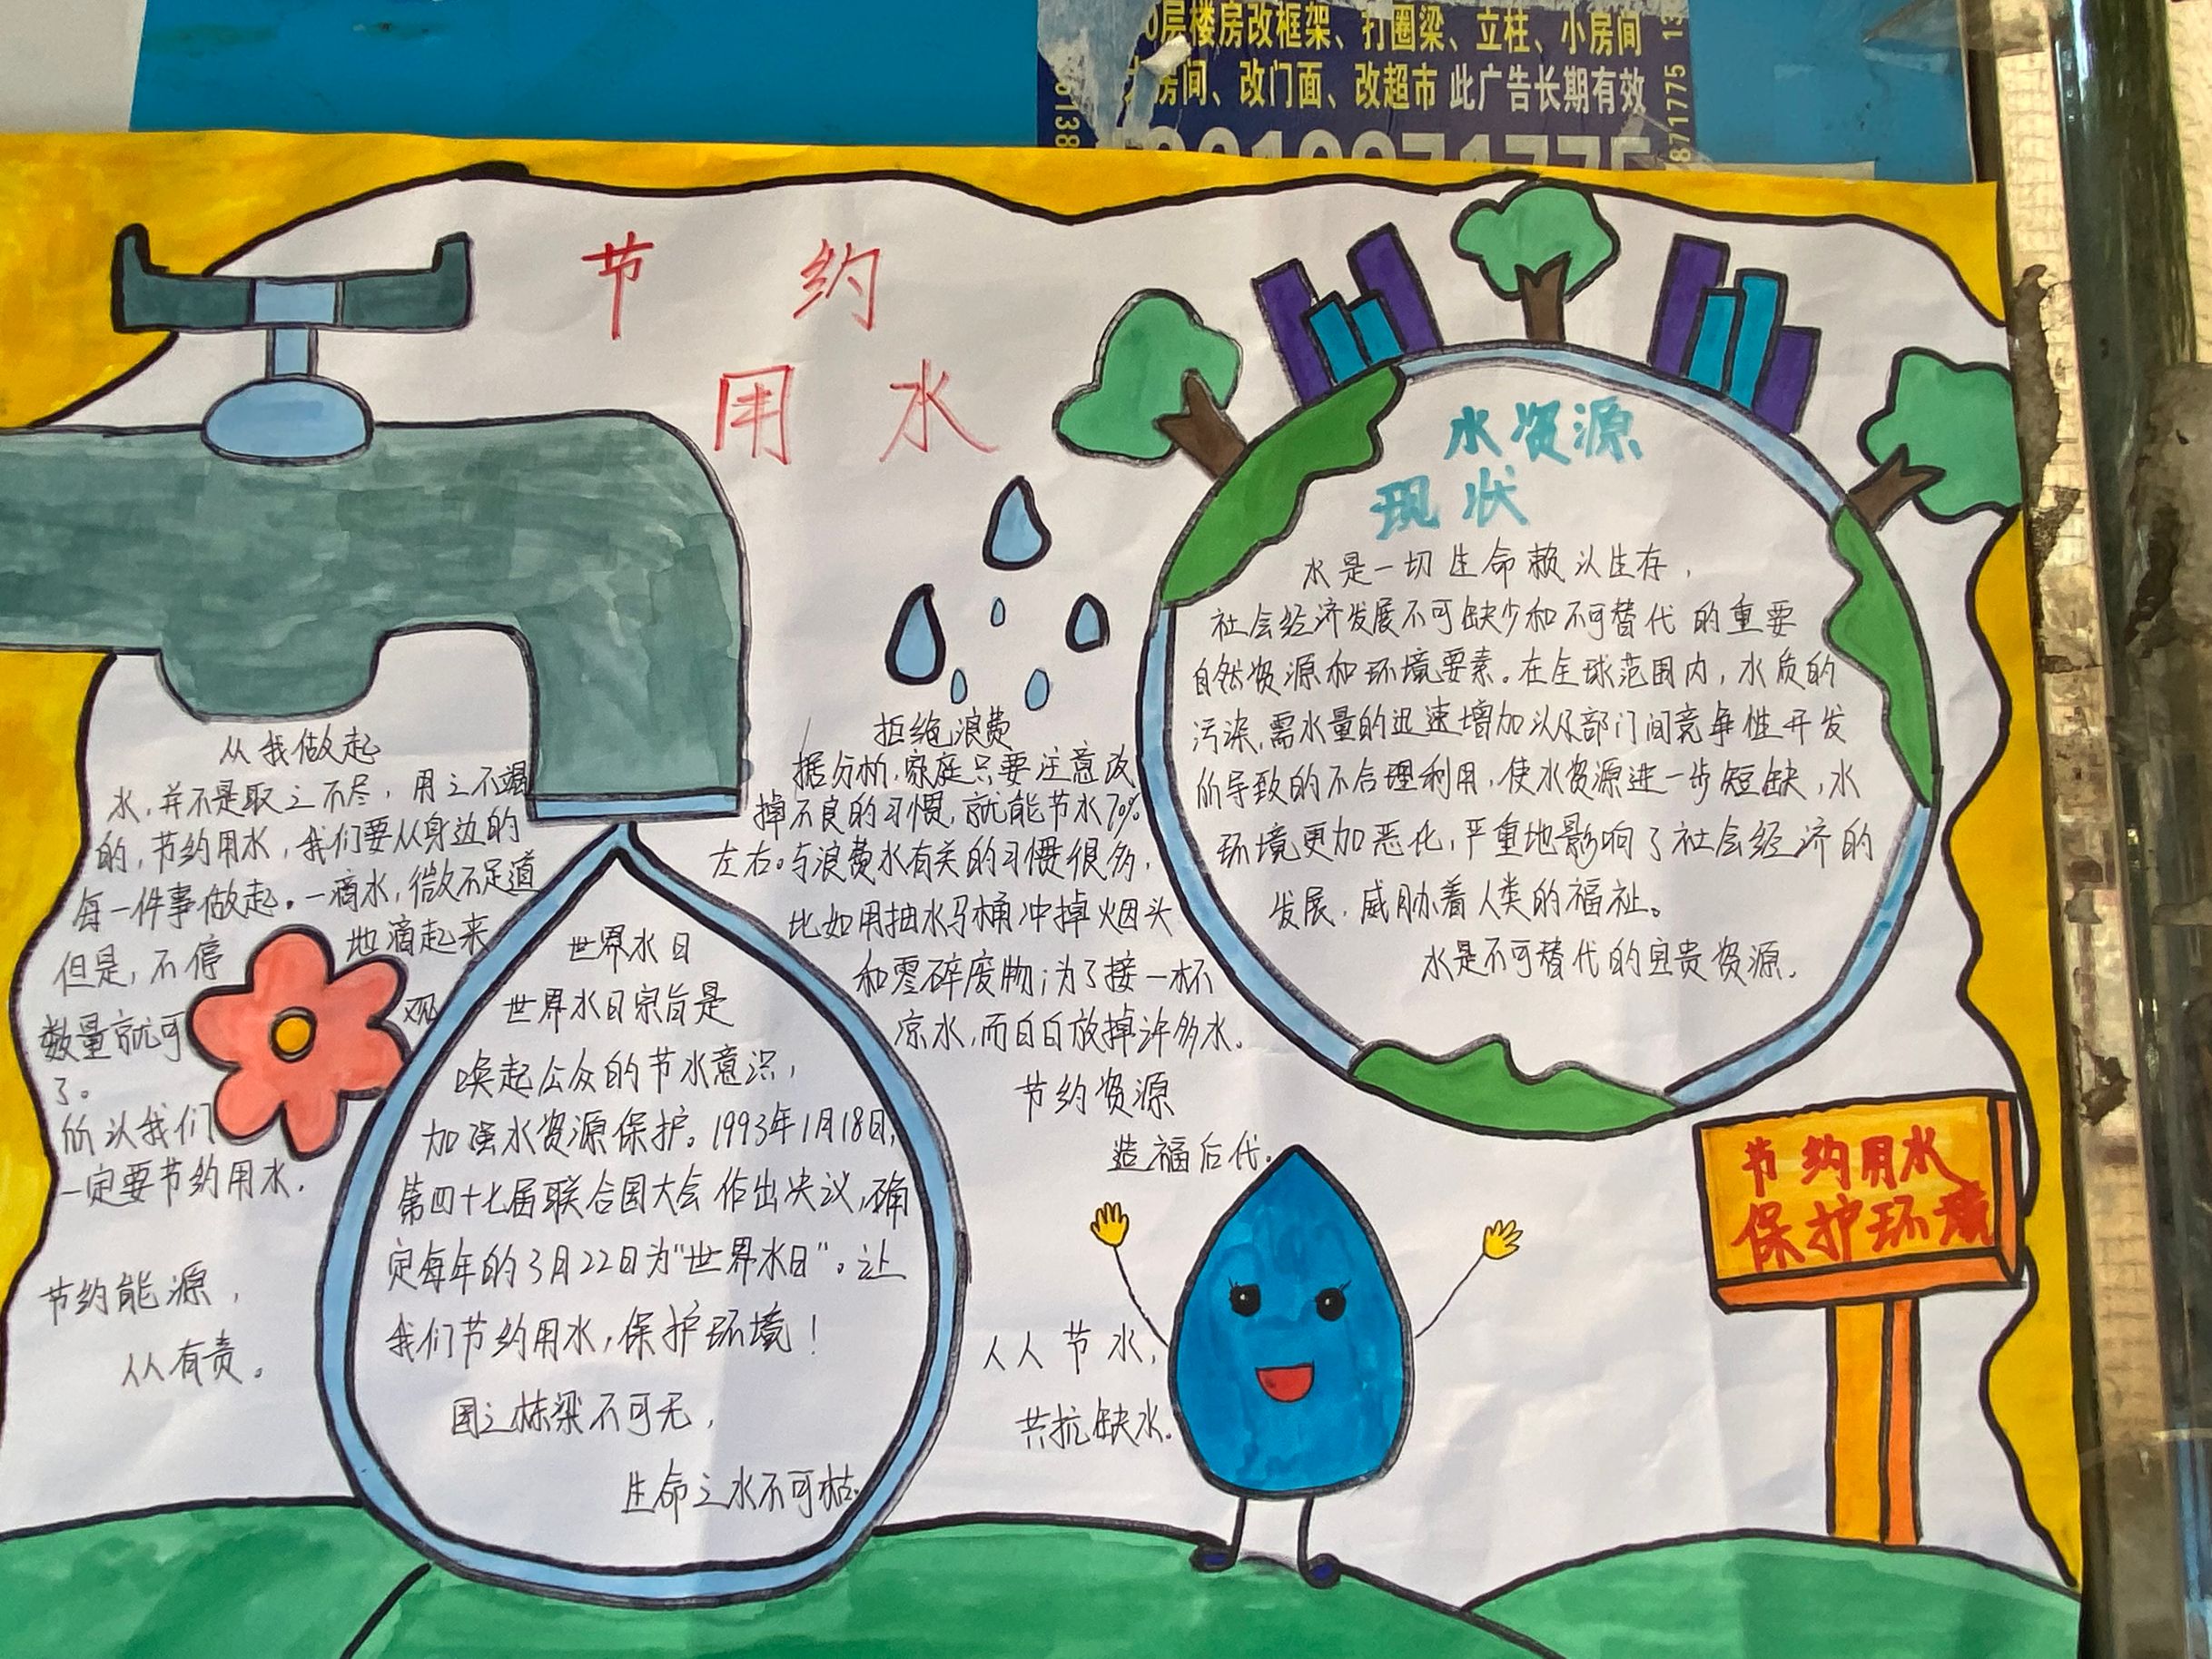 0层楼房改框架、打圈梁、立柱、小房间
房间、改门面、改超市 此广告长期有效
8718775 13
节约
用水
水资源
现状
水是一切生命赖以生存,
社会经济发展不可缺少和不可替代的重要
自然资源和环境要素。在全球范围内,水质的
污染,需水量的迅速增加以及部门间竞争性开发
所导致的不合理利用,使水资源进一步短缺,水
环境更加恶化,严重地影响了社会经济的
发展,威胁着人类的福祉。
水是不可替代的宝贵资源。
从我做起
水,并不是取之不尽,用之不竭
的,节约用水,我们要从身边的
每一件事做起。一滴水,微不足道
但是,不停地滴起来
数量就可观
了。
所以我们
一定要节约用水。
节约能源,
人人有责。
拒绝浪费
据分析,家庭只要注意改
掉不良的习惯,就能节水70%
左右。与浪费水有关的习惯很多,
比如用抽水马桶冲掉烟头
和零碎废物;为了接一杯
凉水,而白白放掉许多水。
节约资源
造福后代。
世界水日
世界水日宗旨是
唤起公众的节水意识,
加强水资源保护。1993年1月18日,
第四十七届联合国大会作出决议,确
定每年的3月22日为"世界水日"。让
我们节约用水,保护环境!
国之栋梁不可无,
生命之水不可枯。
人人节水,
共抗缺水。
节约用水
保护环境